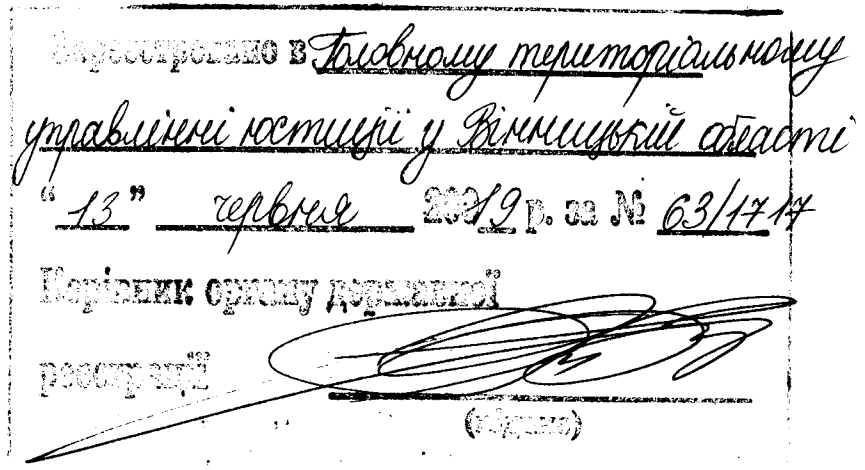 Зареєстровано в Головному територіальному
управлінні юстиції у Вінницькій області
“ 13 ” червня 2019 р. за № 63/1717
Керівник органу державної
реєстрації
(підпис)